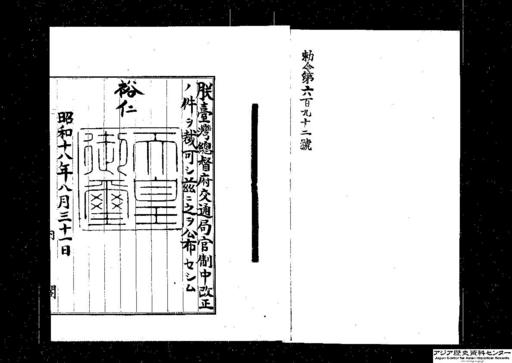 勅令第六百九十二號
朕臺灣總督府交通局官制中改正
ノ件ヲ裁可シ茲ニ之ヲ公布セシム
裕仁
天皇御璽
昭和十八年八月三十一日
内閣
アジア歴史資料センター
Japan Center for Asian Historical Records